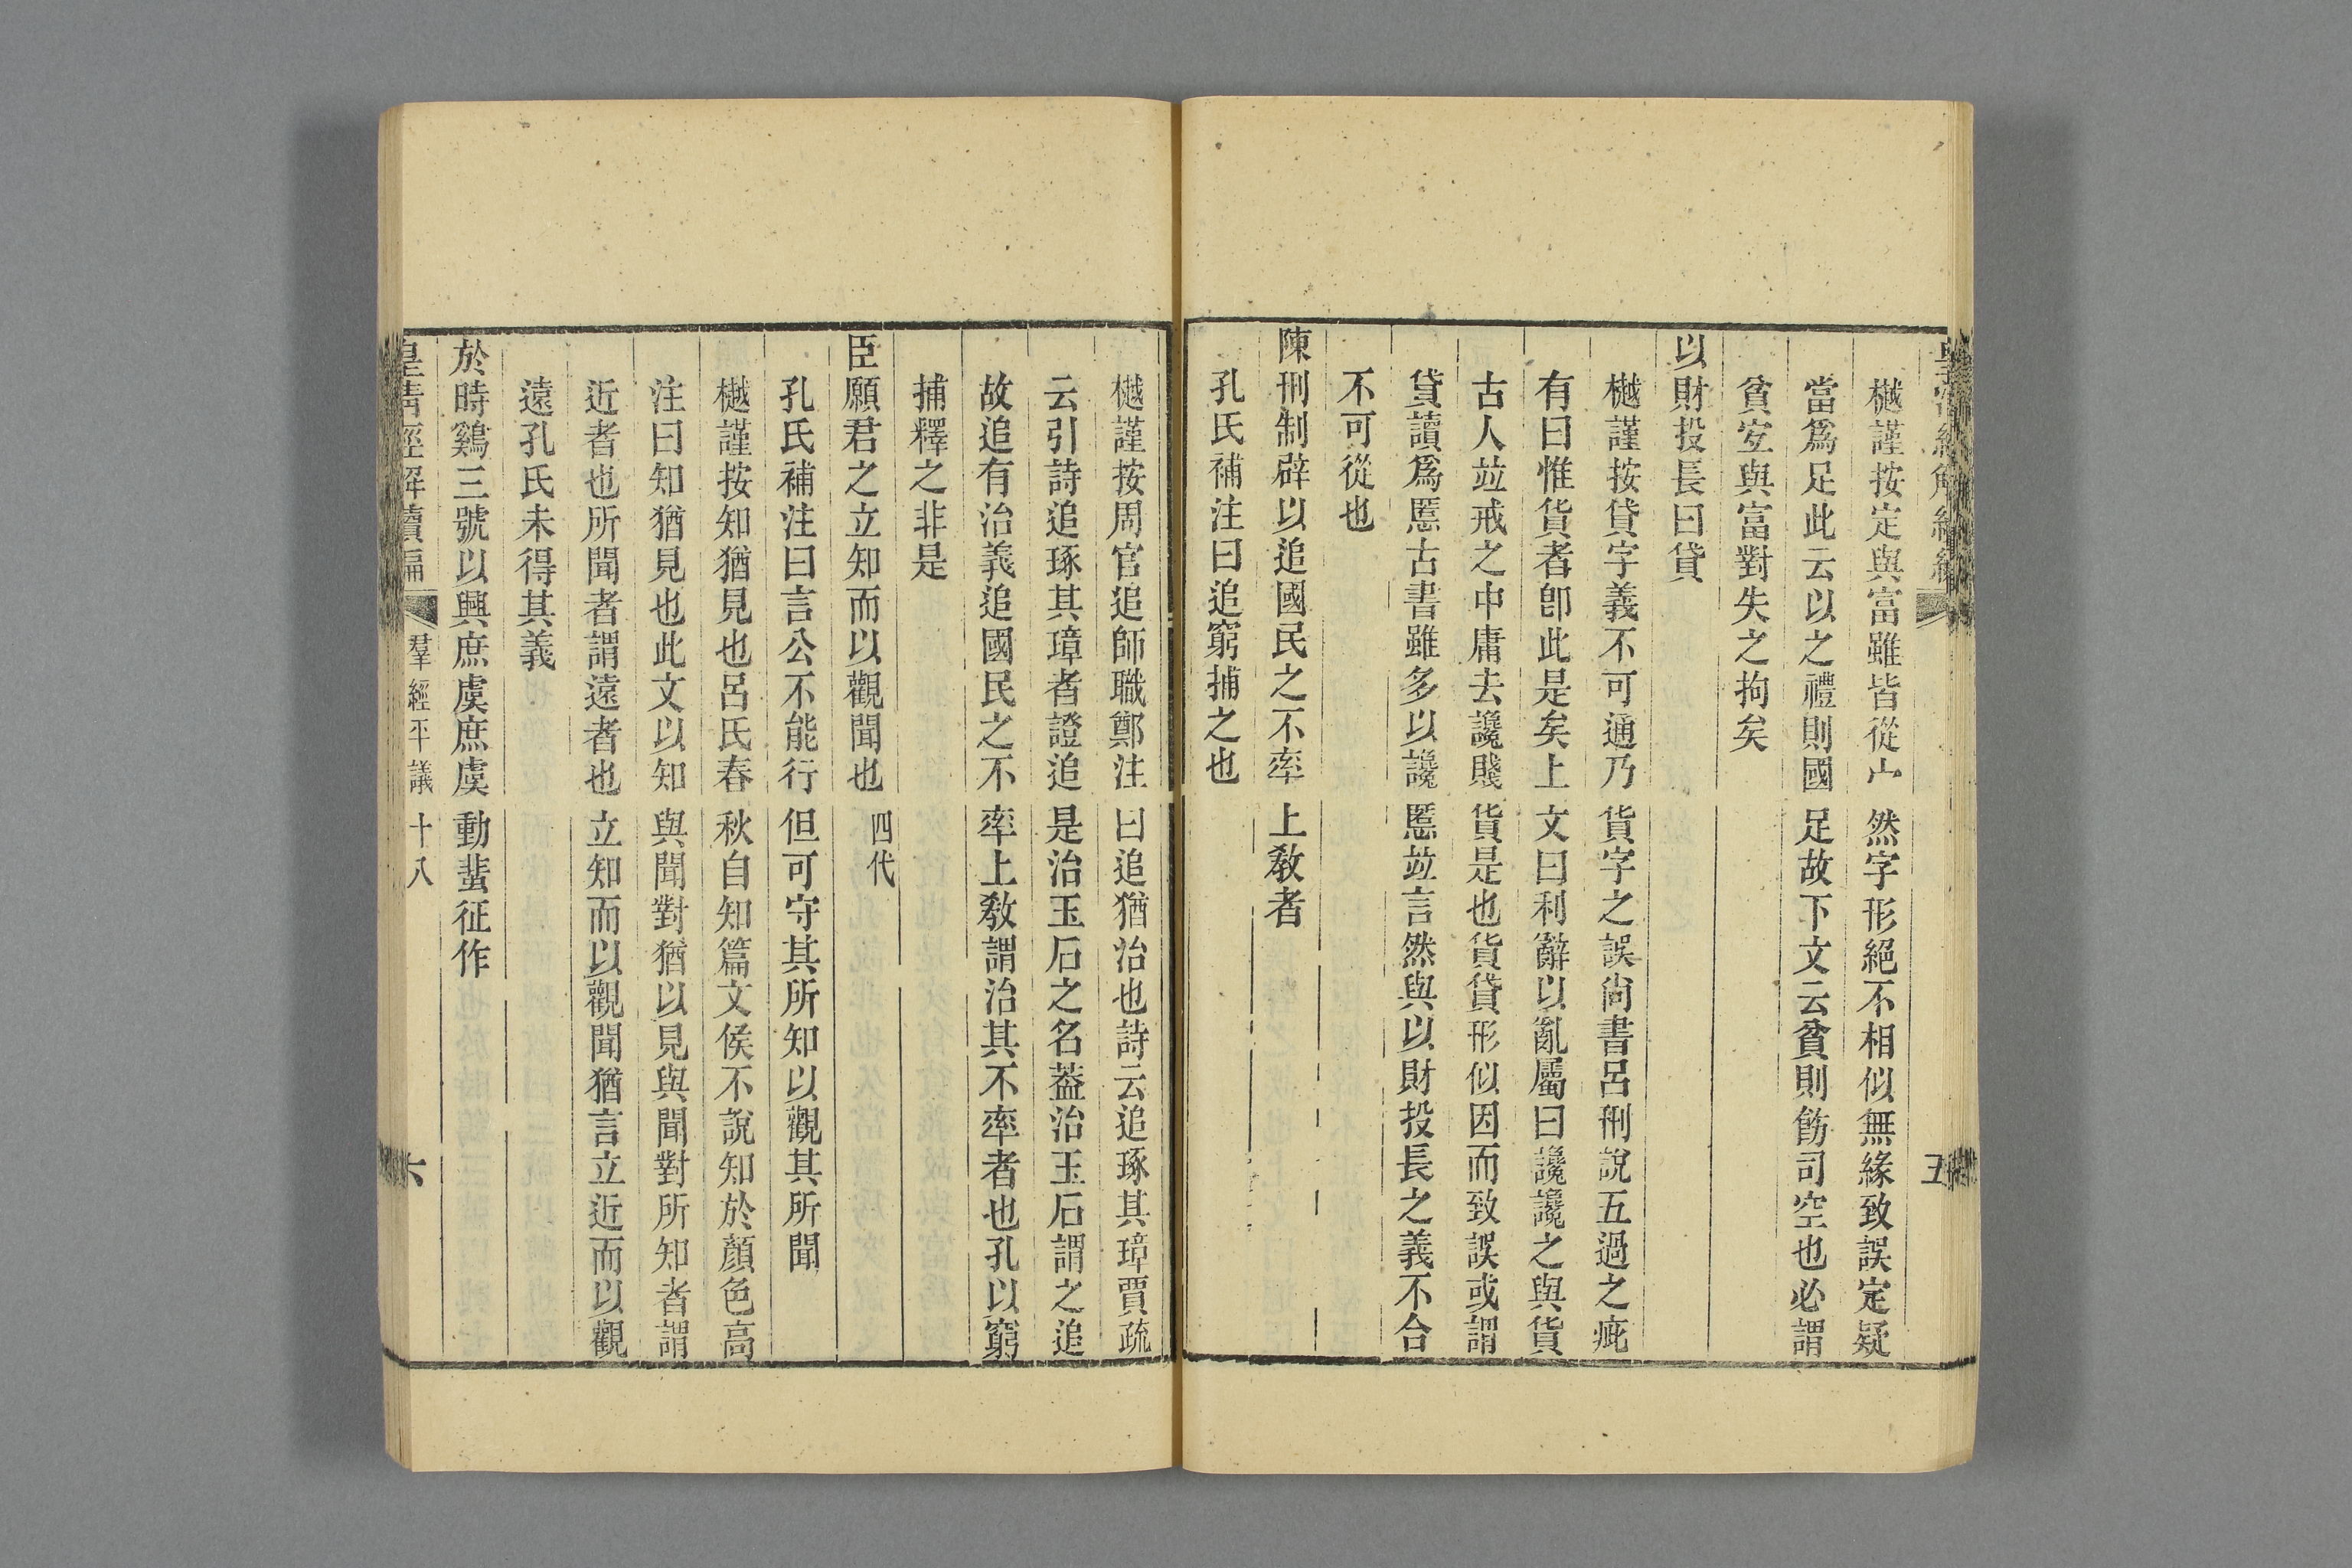 樾謹按定與富雖皆從宀然字形絕不相似無緣致誤定疑
當爲足此云以之禮則國足故下文云貧則飭司空也必謂
貧定與富對失之拘矣
以財投長曰貸
樾謹按貸字義不可通乃貨字之誤尙書呂刑說五過之疵
有曰惟貨者卽此是矣上文曰利辭以亂屬曰讒讒之與貨
古人竝戒之中庸去讒賤貨是也貨貸形似因而致誤或謂
貸讀爲慝古書雖多以讒慝竝言然與以財投長之義不合
不可從也
陳刑制辟以追國民之不率上敎者
孔氏補注曰追窮捕之也
五
樾謹按周官追師職鄭注曰追猶治也詩云追琢其璋賈疏
云引詩追琢其璋者證追是治玉石之名葢治玉石謂之追
故追有治義追國民之不率上敎謂治其不率者也孔以窮
捕釋之非是
臣願君之立知而以觀聞也 四代
孔氏補注曰言公不能行但可守其所知以觀其所聞
樾謹按知猶見也呂氏春秋自知篇文侯不說知於顏色高
注曰知猶見也此文以知與聞對猶以見與聞對所知者謂
近者也所聞者謂遠者也立知而以觀聞猶言立近而以觀
遠孔氏未得其義
於時鷄三號以興庶虞庶虞動蜚征作
皇淸經解續編 羣經平議十八 六